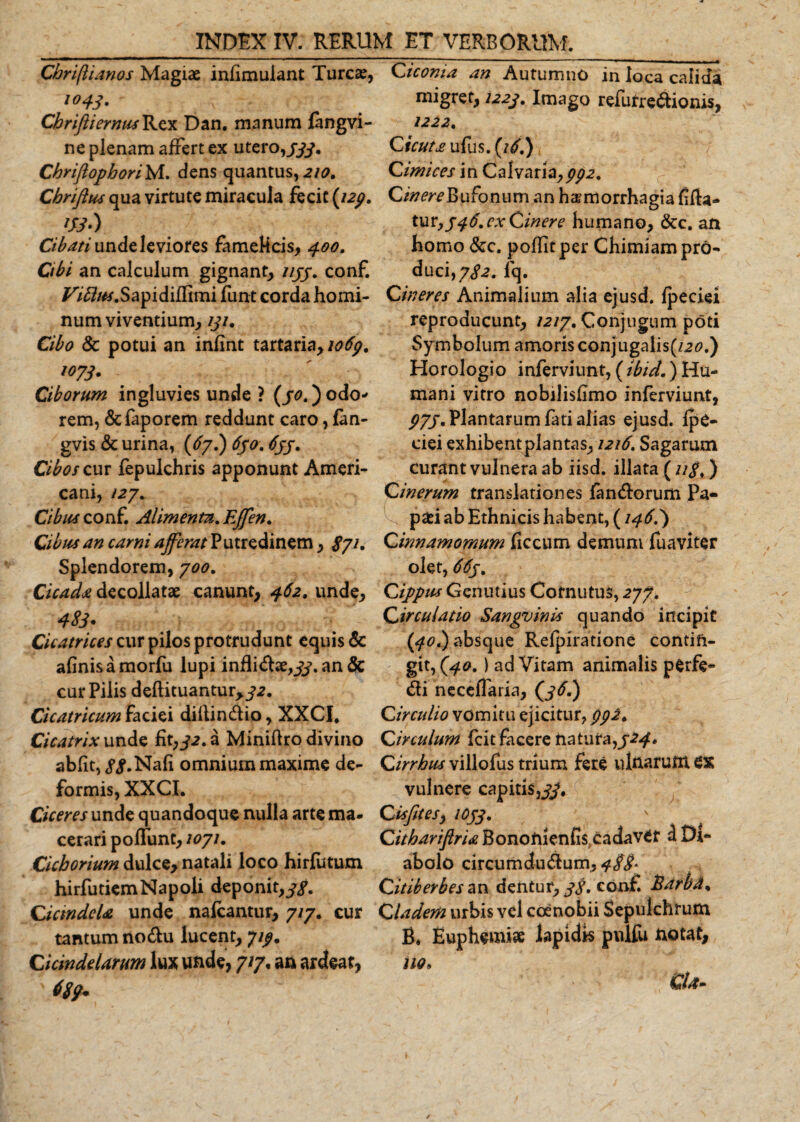 INDEX IV. RERUM ET VERBORUM.
Chriſtianos Magiæ inſimulant Turcæ,
1043.
Chriſtiernus Rex Dan. manum ſangvi-
ne plenam affert ex utero, 533.
Chriſtophori M. dens quantus, 210.
Chriſtus qua virtute miracula fecit (129.
153.)
Cibati unde leviores famelicis, 400.
Cibi an calculum gignant, 1155. conf.
Victus. Sapidiſſimi ſunt corda homi-
num viventium, 131.
Cibo & potui an inſint tartaria, 1069.
1073.
Ciborum ingluvies unde? (50.) odo-
rem, & ſaporem reddunt caro, ſan-
gvis & urina, (67.) 650. 655.
Cibos cur ſepulchris apponunt Ameri-
cani, 127.
Cibus conf. Alimenta. Eſſen.
Cibus an carni afferat Putredinem, 871.
Splendorem, 700.
Cicadæ decollatæ canunt, 462. unde,
483.
Cicatrices cur pilos protrudunt equis &
aſinis à morſu lupi inflictæ, 33. an &
cur Pilis deſtituantur, 32.
Cicatricum faciei diſtinctio, XXCI.
Cicatrix unde fit, 32. à Miniſtro divino
abſit, 88. Naſi omnium maxime de-
formis, XXCI.
Ciceres unde quandoque nulla arte ma-
cerari poſſunt, 1071.
Cichorium dulce, natali loco hirſutum
hirſutiem Napoli deponit, 38.
Cicindelæ unde naſcantur, 717. cur
tantum noctu lucent, 719.
Cicindelarum lux unde, 717. an ardeat,
689.
Ciconia an Autumno in loca calida
migret, 1223. Imago reſurrectionis,
1222.
Cicutæ uſus. (16.)
Cimices in Calvaria, 992.
Cinere Bufonum an hæmorrhagia ſiſta-
tur, 546. ex Cinere humano, &c. an
homo &c. poſſit per Chimiam pro-
duci, 782. ſq.
Cineres Animalium alia ejusd. ſpeciei
reproducunt, 1217. Conjugum poti
Symbolum amoris conjugalis (120.)
Horologio inſerviunt, (ibid.) Hu-
mani vitro nobilisſimo inſerviunt,
975. Plantarum ſati alias ejusd. ſpe-
ciei exhibent plantas, 1216. Sagarum
curant vulnera ab iisd. illata (118.)
Cinerum translationes ſanctorum Pa-
pæi ab Ethnicis habent, (146.)
Cinnamomum ſiccum demum ſuaviter
olet, 665.
Cippus Genutius Cornutus, 277.
Circulatio Sangvinis quando incipit
(40.) absque Reſpiratione contin-
git, (40.) ad Vitam animalis perfe-
cti neceſſaria, (36.)
Circulio vomitu ejicitur, 992.
Circulum ſcit facere natura, 524.
Cirrhus villoſus trium fere ulnarum ex
vulnere capitis, 33.
Cisſites, 1053.
Cithariſtriæ Bononienſis cadaver à Di-
abolo circumductum, 488.
Citiberbes an dentur, 38. conf. Barba.
Cladem urbis vel cœnobii Sepulchrum
B. Euphemiæ lapidis pulſu notat,
110.
Cla-